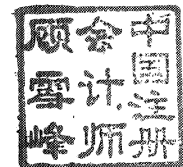 中国注册
会计师
顾雪峰